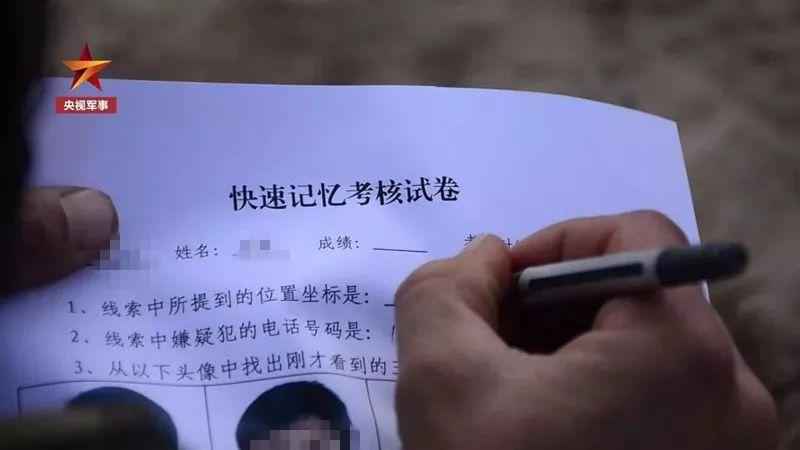 央视军事
快速记忆考核试卷
姓名： 成绩：
1、线索中所提到的位置坐标是：
2、线索中嫌疑犯的电话号码是：
3、从以下头像中找出刚才看到的三